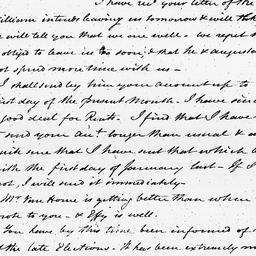 I have rec'd your letter of the
William intends leaving us tomorrow & will take
he will tell you that we are well. we regret
obliged to leave us so soon; & that he & augusta
not spend more time with us -
I shall send by him your account up to
first day of the present month. I have since
good deal for Rent. I find that I have
send your act longer than usual &
quite sure that I have sent that which
with the first day of January last - If
not, I will send it immediately -
Mr. Van Horne is getting better than when
wrote to you - & Effy is well.
You have by this time been informed of
of the late Elections. It has been extremely